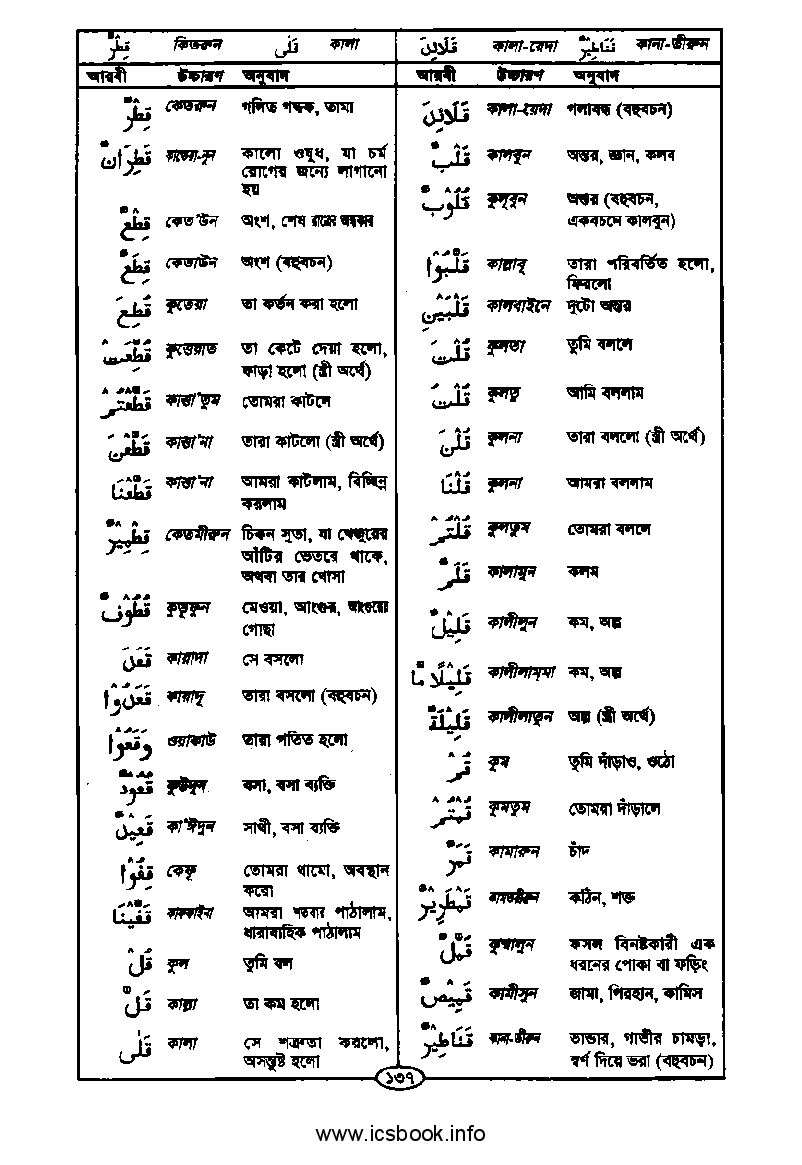 قِطْرٌ কিতরুন قَلٰى কালা
আরবী উচ্চারণ অনুবাদ
قِطْرٌ কেতরুন গলিত গন্ধক, তামা
قَطِرَانٌ কাতেরা-নুন কালো ওষুধ, যা চর্ম
রোগের জন্যে লাগানো
হয়
قِطْعٌ কেত'উন অংশ, শেষ রাতের অন্ধকার
قِطَعٌ কেতাউন অংশ (বহুবচন)
قُطِعَ কুতেয়া তা কর্তন করা হলো
قُطِّعَتْ কুত্তেয়াত তা কেটে দেয়া হলো,
ফাড়া হলো (স্ত্রী অর্থে)
قَطَعْتُمْ কাত্তা'তুম তোমরা কাটলে
قَطَّعْنَ কাত্তা'না তারা কাটলো (স্ত্রী অর্থে)
قَطَّعْنَا কাত্তা'না আমরা কাটলাম, বিচ্ছিন্ন
করলাম
قِطْمِيْرٌ কেতমীরুন চিকন সূতা, যা খেজুরের
আঁটির ভেতরে থাকে,
অথবা তার খোসা
قُطُوْفٌ কুতূফুন মেওয়া, আংগুর, আংগুরের
গোছা
قَعَدَ কায়াদা সে বসলো
قَعَدُوْا কায়াদূ তারা বসলো (বহুবচন)
وَقَعُوْا ওয়াকাউ তারা পতিত হলো
قُعُوْدٌ কুউদুন বসা, বসা ব্যক্তি
قَعِيْدٌ কা'ঈদুন সাথী, বসা ব্যক্তি
قِفُوْا কেফূ তোমরা থামো, অবস্থান
করো
قَفَّيْنَا কাফফাইনা আমরা শতবার পাঠালাম,
ধারাবাহিক পাঠালাম
قُلْ কুল তুমি বল
قَلَّ কাল্লা তা কম হলো
قَلٰى কালা সে শত্রুতা করলো,
অসন্তুষ্ট হলো
قَلَائِدَ কালা-য়েদা قَنَاطِيْرُ কানা-তীরুন
আরবী উচ্চারণ অনুবাদ
قَلَائِدَ কালা-য়েদা গলাবন্ধ (বহুবচন)
قَلْبٌ কালবুন অন্তর, জ্ঞান, কলব
قُلُوْبٌ কুলূবুন অন্তর (বহুবচন,
একবচনে কালবুন)
قَلَّبُوْا কাল্লাবূ তারা পরিবর্তিত হলো,
ফিরলো
قَلْبَيْنِ কালবাইনে দুটো অন্তর
قُلْتَ কুলতা তুমি বললে
قُلْتُ কুলতু আমি বললাম
قُلْنَ কুলনা তারা বললো (স্ত্রী অর্থে)
قُلْنَا কুলনা আমরা বললাম
قُلْتُمْ কুলতুম তোমরা বললে
قَلَمٌ কালামুন কলম
قَلِيْلٌ কালীলুন কম, অল্প
قَلِيْلًا مَّا কালীলাম্মা কম, অল্প
قَلِيْلَةٌ কালীলাতুন অল্প (স্ত্রী অর্থে)
قُمْ কুম তুমি দাঁড়াও, ওঠো
قُمْتُمْ কুমতুম তোমরা দাঁড়ালে
قَمَرٌ কামারুন চাঁদ
قَمْطَرِيْرٌ কামতারীরুন কঠিন, শক্ত
قُمَّلٌ কুম্মালুন ফসল বিনষ্টকারী এক
ধরনের পোকা বা ফড়িং
قَمِيْصٌ কামীসুন জামা, পিরহান, কামিস
قَنَاطِيْرٌ কানা-তীরুন ভান্ডার, গাভীর চামড়া,
স্বর্ণ দিয়ে ভরা (বহুবচন)
১৩৭
www.icsbook.info